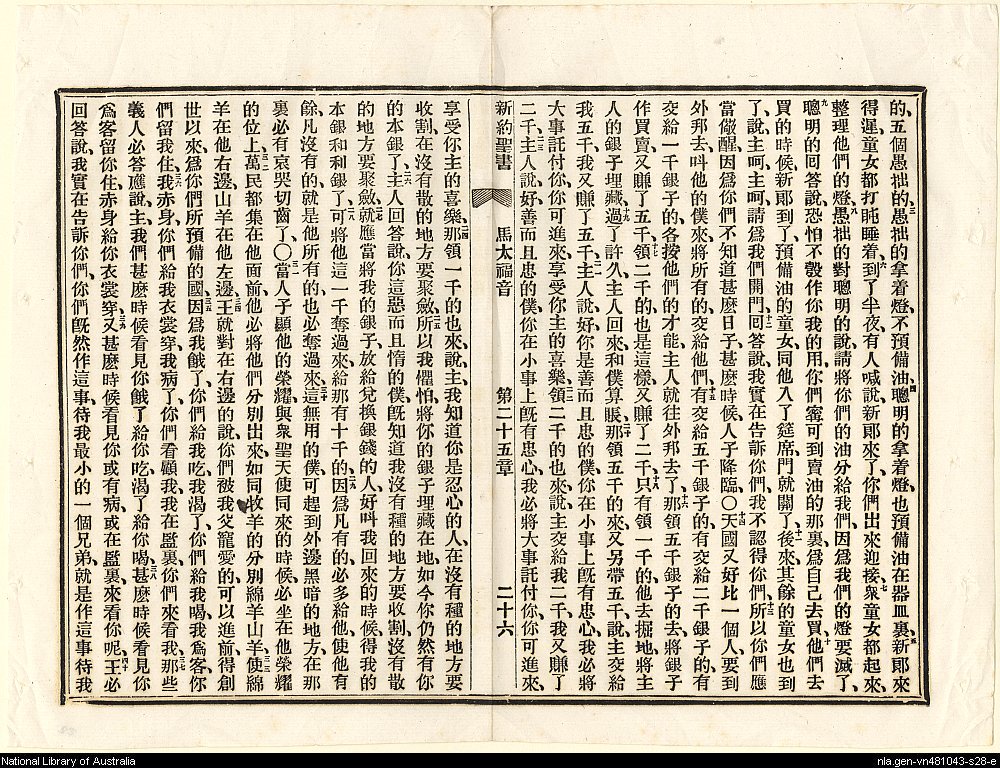 的、五個愚拙的愚拙的拿着燈、不預備油、聰明的拿着燈、也預備油在器皿裏、新郎來
得遲、童女都打盹睡着、到了半夜、有人喊說、新郎來了、你們出來迎接、衆童女都起來、
整理他們的燈、愚拙的對聰明的說、請將你們的油分給我們、因爲我們的燈要滅了、
聰明的回答說、恐怕不彀作你我的用、你們寗可到賣油的那裏、爲自己去買、他們去
買的時候、新郎到了、預備油的童女、同他入了筵席、門就關了、後來其餘的童女也到
了、說、主呵、主呵、請爲我們開門、回答說、我實在告訴你們、我不認得你們、所以你們應
當儆醒、因爲你們不知道甚麽日子、甚麽時候、人子降臨○天國又好比一個人、要到
外邦去、叫他的僕來、將所有的交給他們、有交給五千銀子的、有交給二千銀子的、有
交給一千銀子的、各按他們的才能、主人就往外邦去了、那領五千銀子的去、將銀子
作買賣、又賺了五千、領二千的也是這樣、又賺了二千、只有領一千的、他去掘地、將主
人的銀子埋藏、過了許久、主人回來、和僕算賬、那領五千的來、又另帶五千、說、主交給
我五千、我又賺了五千、主人說、好、你是善而且忠的僕、你在小事上旣有忠心、我必將
大事託付你、你可進來、享受你主的喜樂、領二千的也來、說、主交給我二千、我又賺了
二千、主人說、好、善而且忠的僕、你在小事上旣有忠心、我必將大事託付你、你可進來、
新約聖書 馬太福音 第二十五章 二十六
享受你主的喜樂、那領一千的也來、說、主、我知道你是忍心的人、在沒有種的地方要
收割、在沒有散的地方要聚斂、所以我懼怕、將你的銀子埋藏在地、如今你仍然有你
的本銀了、主人回答說、你這惡而且惰的僕、旣知道我沒有種的地方要收割、沒有散
的地方要聚斂、就應當將我的銀子、放給兌換銀錢的人、好叫我回來的時候、得我的
本銀和利銀了、可將他這一千奪過來、給那有十千的、因爲凡有的、必多給他、使他有
餘、凡沒有的、就是他所有的、也必奪過來、這無用的僕、可趕到外邊黑暗的地方、在那
裏必有哀哭切齒了、○當人子顯他的榮耀、與衆聖天使同來的時候、必坐在他榮耀
的位上、萬民都集在他面前、他必將他們分別出來、如同牧羊的分別綿羊山羊、使綿
羊在他右邊、山羊在他左邊、王就對在右邊的說、你們被我父寵愛的、可以進前、得創
世以來、爲你們所預備的國、因爲我餓了、你們給我吃、我渴了、你們給我喝、我爲客、你
們留我住、我赤身、你們給我衣裳穿、我病了、你們看顧我、我在監裏、你們來看我、那些
義人必答應說、主、我們甚麽時候看見你餓了給你吃、渴了給你喝、甚麽時候看見你
爲客留你住、赤身給你衣裳穿、又甚麽時候看見你或有病、或在監裏、來看你呢、王必
回答說、我實在告訴你們、你們旣然作這事、待我最小的一個兄弟、就是作這事待我
National Library of Australia
nla.gen-vn481043-s28-e